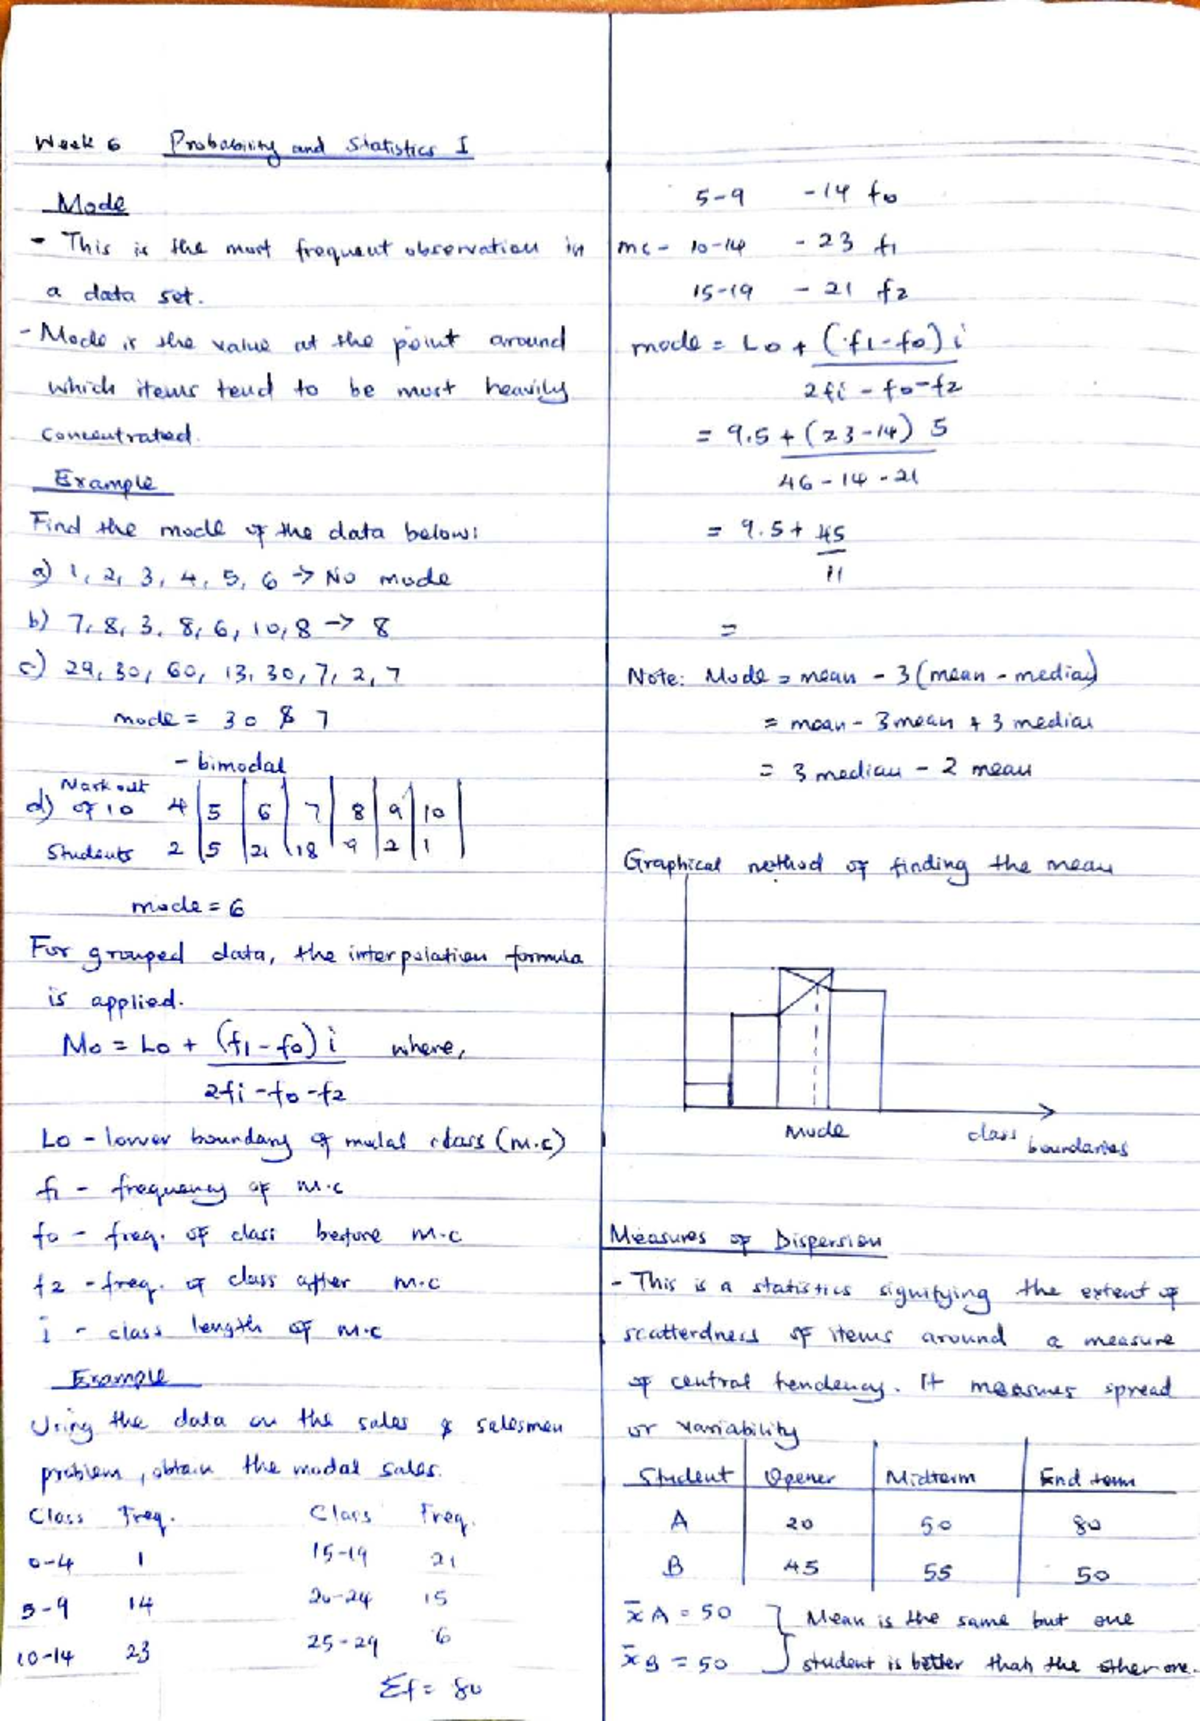 Week 6 Probability and Statistics I
Mode
- This is the most frequent observation in
a data set.
- Mode is the value at the point around
which items tend to be most heavily
concentrated.
Example
Find the mode of the data below:
a) 1, 2, 3, 4, 5, 6 → No mode
b) 7, 8, 3, 8, 6, 10, 8 → 8
c) 29, 30, 60, 13, 30, 7, 2, 7
mode = 30 & 7
- bimodal
d) Mark out of 10 4 5 6 7 8 9 10
Students 2 5 21 18 9 2 1
mode = 6
For grouped data, the interpolation formula
is applied.
Mo = Lo + (f1 - f0) i where,
2fi - fo - f2
Lo - lower boundary of modal class (m.c)
f1 - frequency of m.c
fo - freq. of class before m.c
f2 - freq. of class after m.c
i - class length of m.c
Example
Using the data on the sales & salesmen
problem, obtain the modal sales.
Class Freq. Class Freq.
0-4 1 15-19 21
5-9 14 20-24 15
10-14 23 25-29 6
Σf = 80
5-9 - 14 fo
mc - 10-14 - 23 f1
15-19 - 21 f2
mode = Lo + (f1 - fo) i
2fi - fo - f2
= 9.5 + (23-14) 5
46 - 14 - 21
= 9.5 + 45
11
=
Note: Mode = mean - 3(mean - median)
= mean - 3 mean + 3 median
= 3 median - 2 mean
Graphical method of finding the mean
Mode class boundaries
Measures of Dispersion
- This is a statistics signifying the extent of
scatterdness of items around a measure
of central tendency. It measures spread
or variability
Student Opener Midterm End term
A 20 50 80
B 45 55 50
x̄A = 50 } Mean is the same but one
x̄B = 50 student is better than the other one.